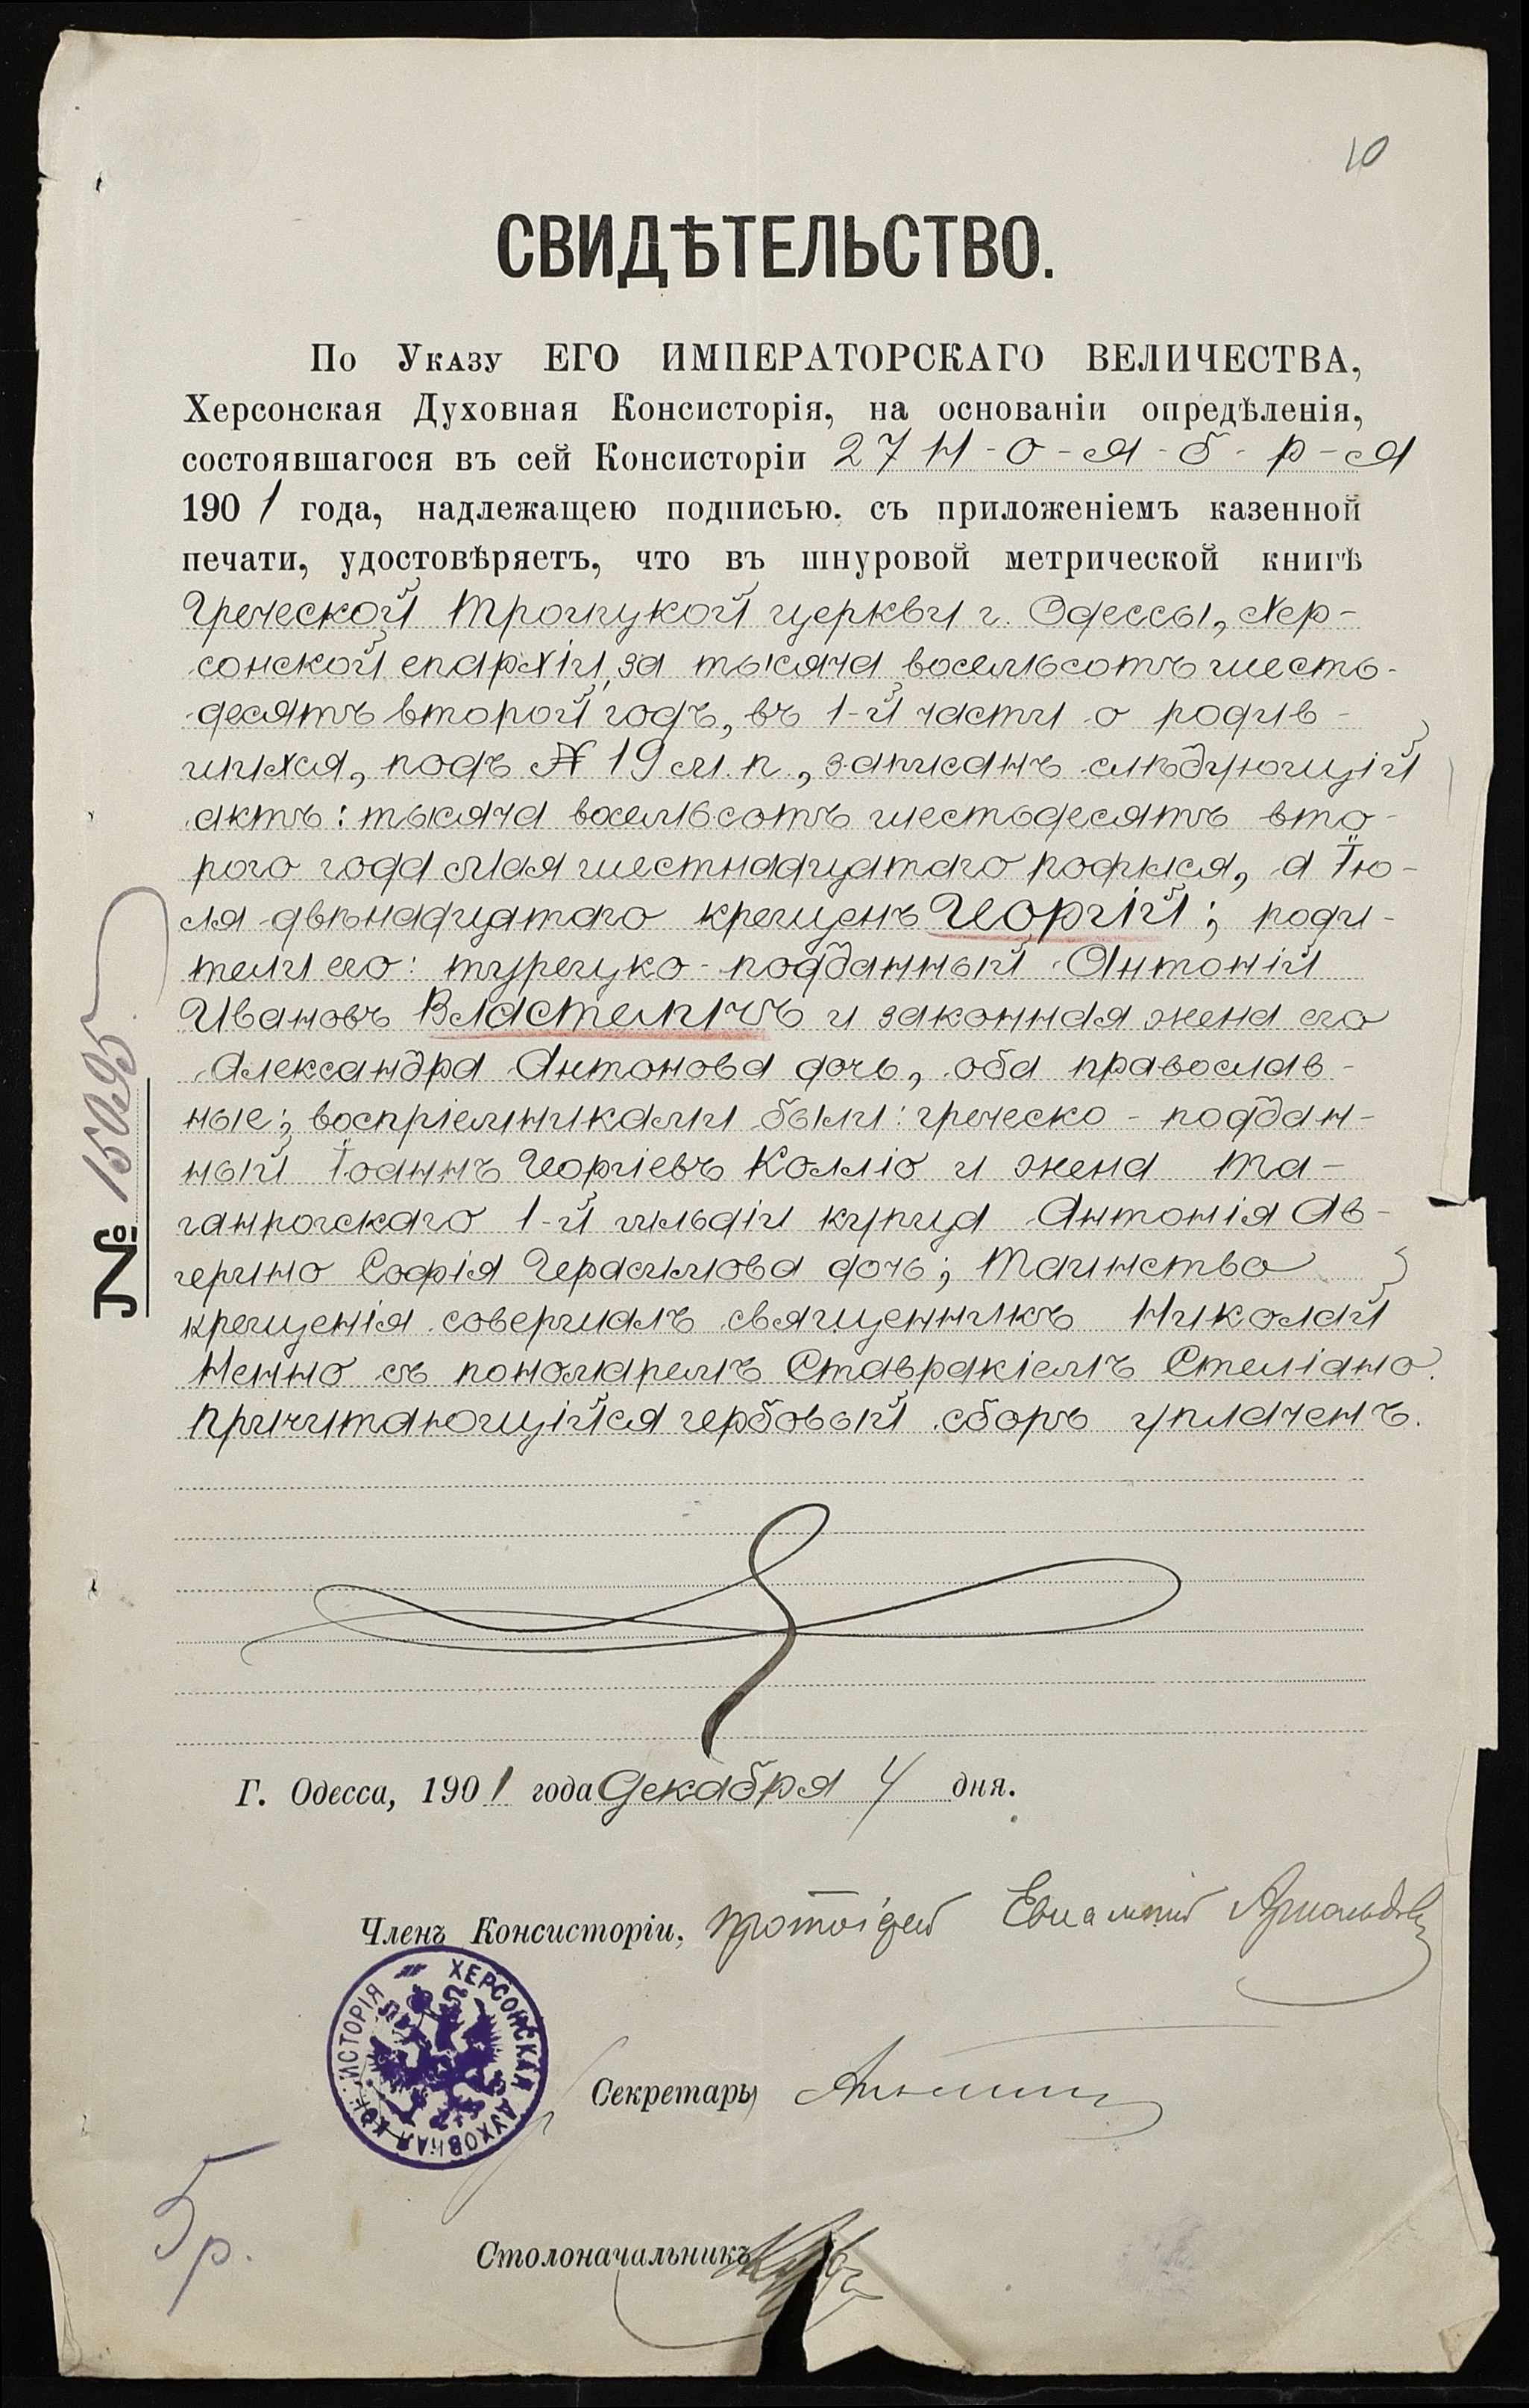 10
СВИДѢТЕЛЬСТВО.
По Указу ЕГО ИМПЕРАТОРСКАГО ВЕЛИЧЕСТВА,
Херсонская Духовная Консисторія, на основаніи опредѣленія,
состоявшагося въ сей Консисторіи 27 Н-о-я-б-р-я
1901 года, надлежащею подписью. съ приложеніемъ казенной
печати, удостовѣряетъ, что въ шнуровой метрической книгѣ
Греческой Троицкой церкви г. Одессы, Хер-
сонской епархіи, за тысяча восемьсотъ шесть-
десятъ второй годъ, въ 1-й части о родив-
шихся, подъ № 19 м. п., записанъ слѣдующій
актъ: тысяча восемьсотъ шестьдесятъ вто-
рого года мая шестнадцатаго родился, а Ію-
ля двѣнадцатаго крещенъ Георгій; роди-
тели его: турецко-подданный Антоній
Ивановъ Властеличъ и законная жена его
Александра Антонова дочь, оба православ-
ные; воспріемниками были: греческо-поддан-
ный Іоаннъ Георгіевъ Колліо и жена Та-
ганрогскаго 1-й гильдіи купца Антонія Ав-
герино Софія Герасимова дочь; Таинство
крещенія совершалъ священникъ Николай
Ненно съ пономаремъ Ставракіемъ Стеліано.
Причитающійся гербовый сборъ уплаченъ.
Г. Одесса, 1901 года Декабря 4 дня.
Членъ Консисторіи, протоіерей
ХЕРСОНСКАЯ ДУХОВНАЯ КОНСИСТОРІЯ
Секретарь
Столоначальникъ
5 р.
№ 15095